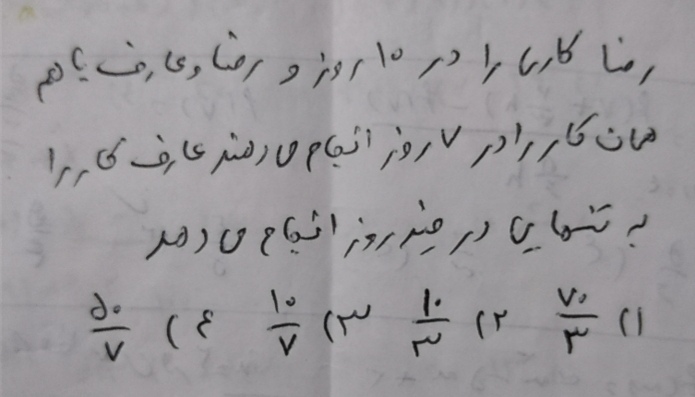 رضا کاری را در ۱۰ روز و رضا و عارف با هم
همان کار را در ۷ روز انجام می دهند عارف کار را
به تنهایی در چند روز انجام می دهد
۱) ۷۰/۳ ۲) ۱۰/۳ ۳) ۱۰/۷ ۴) ۵۰/۷